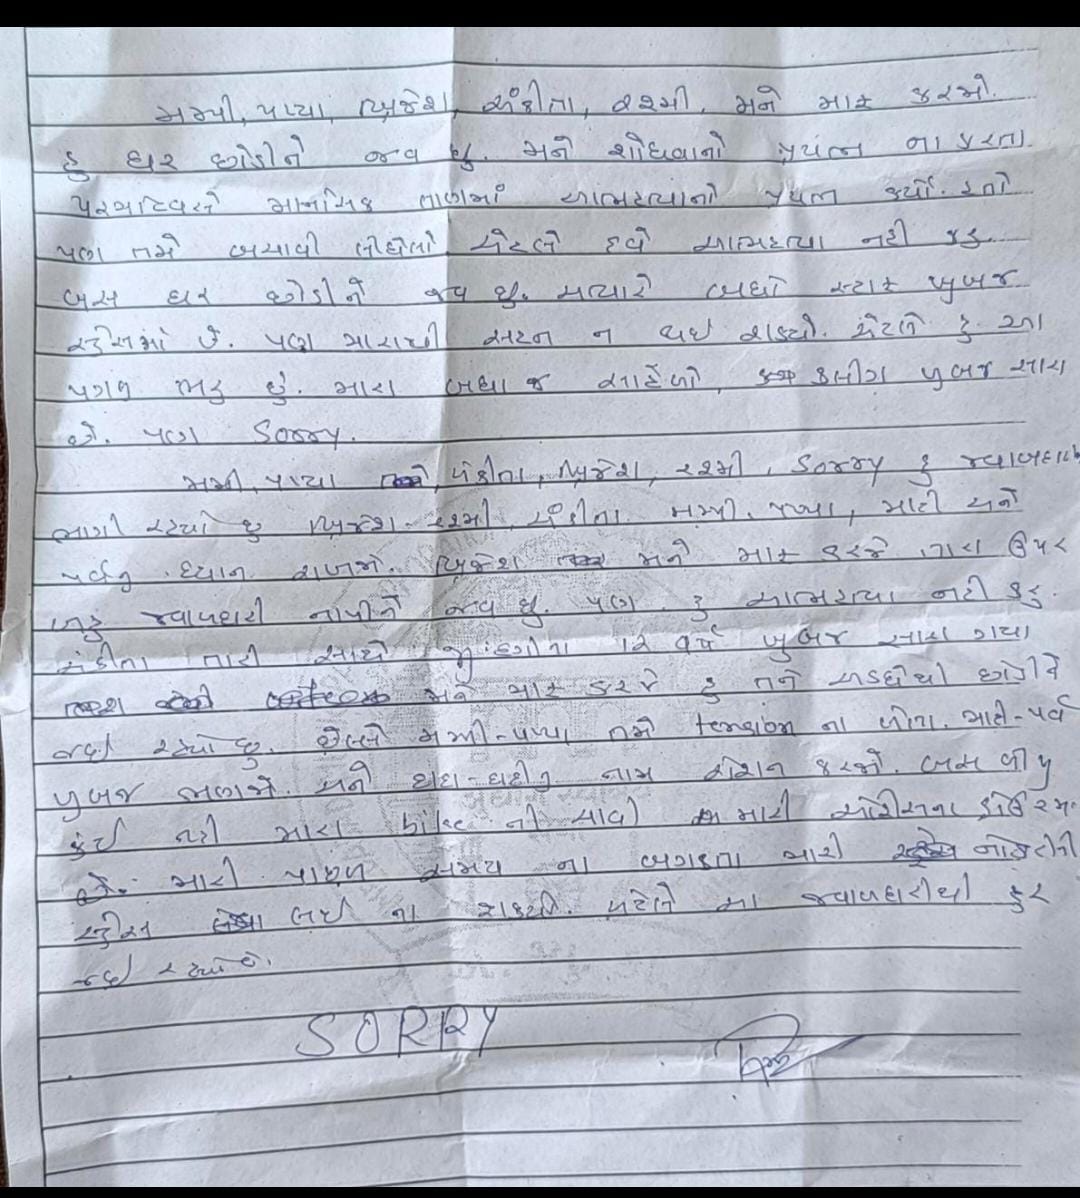 મમ્મી, પપ્પા, બ્રિજેશ, સંગીતા, રશ્મી, મને માફ કરજો.
હુ ઘર છોડીને જવ છુ. મને શોધવાનો પ્રયત્ન ના કરતા.
માનસિક તાણમાં આત્મહત્યાનો પ્રયત્ન કર્યો હતો
પણ તમે બચાવી લીધેલો એટલે હવે આત્મહત્યા નહી કરૂ.
બસ ઘર છોડીને જવ છુ. અત્યારે બધો સ્ટાફ ખુબજ
સ્ટ્રેસમાં છે. પણ મારાથી સહન ન થઇ શક્યો. એટલે હુ આ
પગલુ ભરૂ છું. મારા બધા જ સાહેબો, કલીગ ખુબજ સારા
છે. પણ Sorry.
મમ્મી, પપ્પા, સંગીતા, બ્રિજેશ, રશ્મી, Sorry હુ
ભાગી રહ્યો છુ બ્રિજેશ-રશ્મી, સંગીતા મમ્મી, પપ્પા, માહી અને
પર્વનુ ધ્યાન રાખજો. બ્રિજેશ મને માફ કરજે તારા ઉપર
બહુ જવાબદારી નાખીને જવ છુ. પણ હુ આત્મહત્યા નહી કરૂ.
સંગીતા તારી સાથે જીંદગીના 12 વર્ષ ખુબજ સારા ગયા
મને માફ કરજે હુ તને અડધેથી છોડીને
જઇ રહ્યો છુ. છેલ્લે મમ્મી-પપ્પા તમે tension ના લેતા. માહી-પર્વ
ખુબજ ભણજો. અને દાદા-દાદીનુ નામ રોશન કરજો. બસ બીજુ
કંઇ નહી મારા bike ની ચાવી મારી ઓફીસના
છે. મારી પાછળ સમય ના બગાડતા મારો નોકરીનો
સ્ટ્રેસ લઇ ના શક્યો. એટલે આ જવાબદારીથી દુર
જઇ રહ્યો છુ.
SORRY